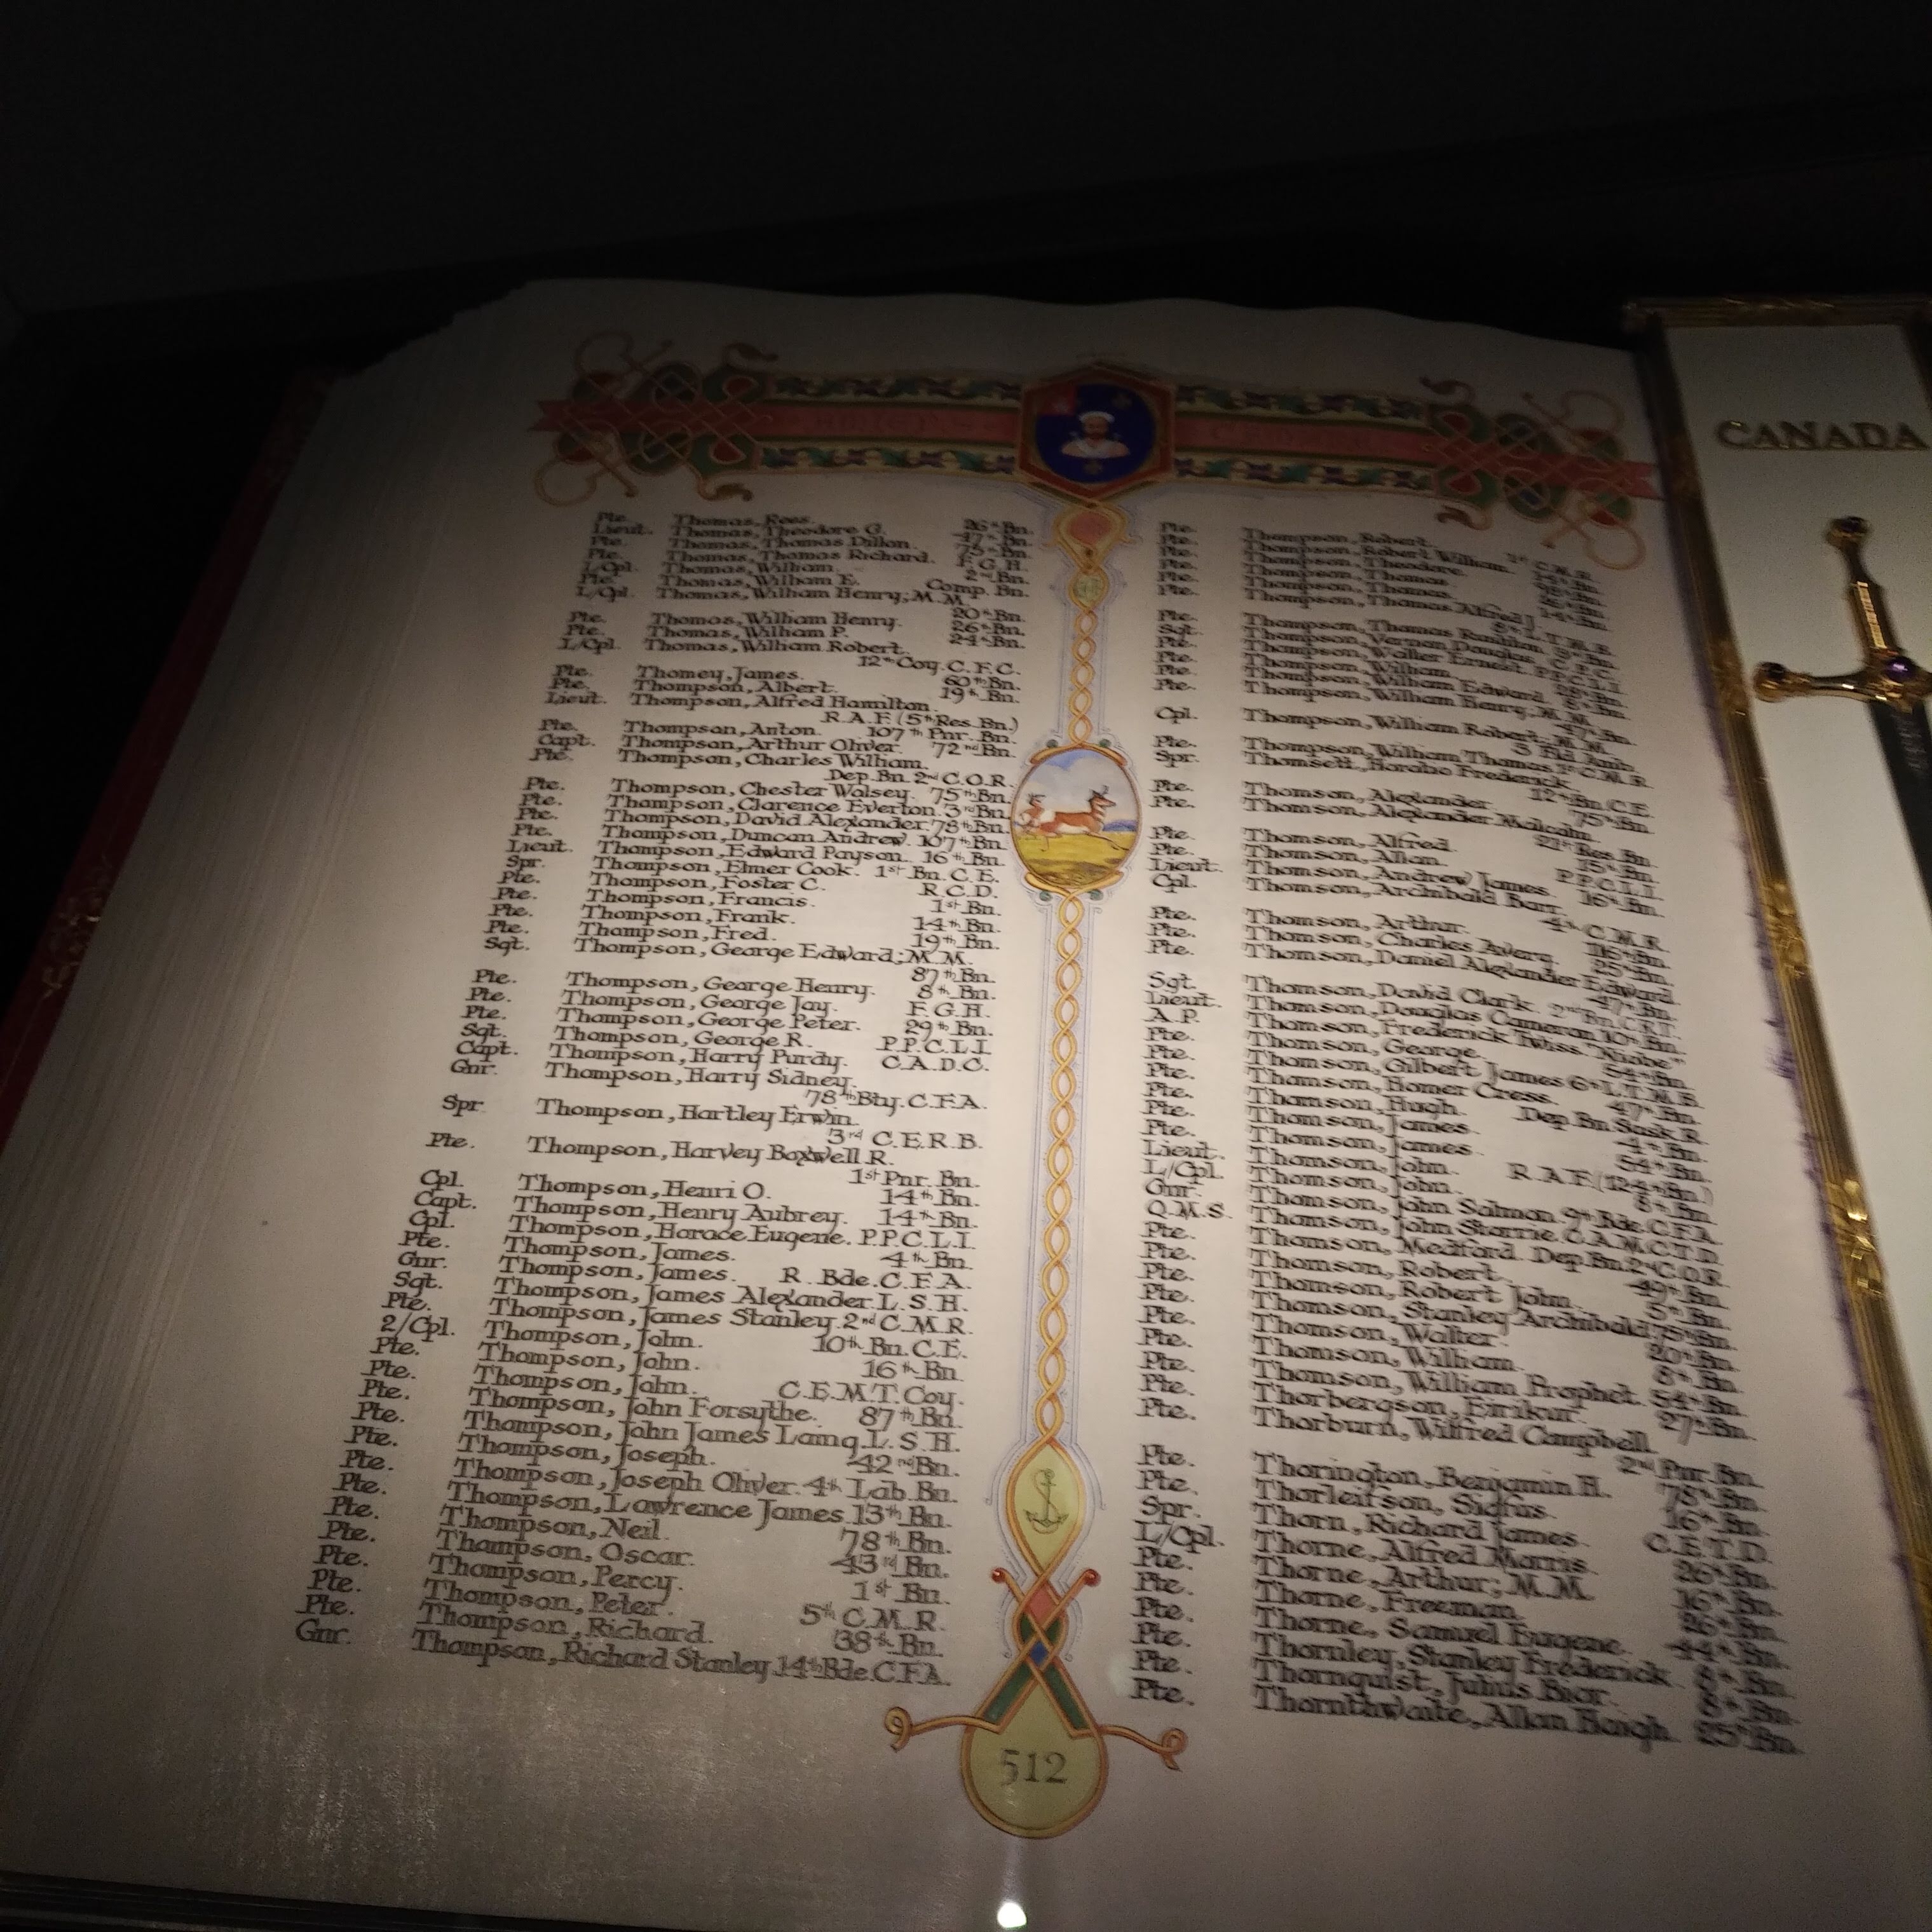 CANADA
Pte. Thomas, Rees. 26th Bn.
Lieut. Thomas, Theodore G. 47th Bn.
Pte. Thomas, Thomas Dillon. 75th Bn.
Pte. Thomas, Thomas Richard. F.G.H.
L/Cpl. Thomas, William. 2nd Bn.
Pte. Thomas, William E. Comp. Bn.
L/Cpl. Thomas, William Henry; M.M.
20th Bn.
Pte. Thomas, William Henry. 26th Bn.
Pte. Thomas, William P. 24th Bn.
L/Cpl. Thomas, William Robert.
12th Coy. C.F.C.
Pte. Thomey, James. 60th Bn.
Pte. Thompson, Albert. 19th Bn.
Lieut. Thompson, Alfred Hamilton.
R.A.F. (5th Res. Bn.)
Pte. Thompson, Anton. 107th Pnr. Bn.
Capt. Thompson, Arthur Oliver. 72nd Bn.
Pte. Thompson, Charles William.
Dep. Bn. 2nd C.O.R.
Pte. Thompson, Chester Wolsey. 75th Bn.
Pte. Thompson, Clarence Everton. 3rd Bn.
Pte. Thompson, David Alexander. 78th Bn.
Pte. Thompson, Duncan Andrew. 107th Bn.
Lieut. Thompson, Edward Payson. 16th Bn.
Spr. Thompson, Elmer Cook. 1st Bn. C.E.
Pte. Thompson, Foster C. R.C.D.
Pte. Thompson, Francis. 1st Bn.
Pte. Thompson, Frank. 14th Bn.
Pte. Thompson, Fred. 19th Bn.
Sgt. Thompson, George Edward; M.M.
87th Bn.
Pte. Thompson, George Henry. 8th Bn.
Pte. Thompson, George Jay. F.G.H.
Pte. Thompson, George Peter. 29th Bn.
Sgt. Thompson, George R. P.P.C.L.I.
Capt. Thompson, Harry Purdy. C.A.D.C.
Gnr. Thompson, Harry Sidney.
78th Bty. C.F.A.
Spr. Thompson, Hartley Erwin.
3rd C.E.R.B.
Pte. Thompson, Harvey Boxwell R.
1st Pnr. Bn.
Cpl. Thompson, Henri O. 14th Bn.
Capt. Thompson, Henry Aubrey. 14th Bn.
Cpl. Thompson, Horace Eugene. P.P.C.L.I.
Pte. Thompson, James. 4th Bn.
Gnr. Thompson, James. R. Bde. C.F.A.
Sgt. Thompson, James Alexander. L.S.H.
Pte. Thompson, James Stanley. 2nd C.M.R.
2/Cpl. Thompson, John. 10th Bn. C.E.
Pte. Thompson, John. 16th Bn.
Pte. Thompson, John. C.E.M.T. Coy.
Pte. Thompson, John Forsythe. 87th Bn.
Pte. Thompson, John James Laing. L.S.H.
Pte. Thompson, Joseph. 42nd Bn.
Pte. Thompson, Joseph Oliver. 4th Lab. Bn.
Pte. Thompson, Lawrence James. 13th Bn.
Pte. Thompson, Neil. 78th Bn.
Pte. Thompson, Oscar. 43rd Bn.
Pte. Thompson, Percy. 1st Bn.
Pte. Thompson, Peter. 5th C.M.R.
Pte. Thompson, Richard. 38th Bn.
Gnr. Thompson, Richard Stanley. 14th Bde. C.F.A.
Pte. Thompson, Robert.
Pte. Thompson, Robert William. 1st C.M.R.
Pte. Thompson, Theodore.
Pte. Thompson, Thomas.
Pte. Thompson, Thomas Alfred J. 14th Bn.
8th L.T.M.B.
Pte. Thompson, Thomas
Sgt. Thompson, Vernon Douglas. C.F.C.
Pte. Thompson, Walter Ernest. P.P.C.L.I.
Pte. Thompson, William.
Pte. Thompson, William Edward. 8th Bn.
Pte. Thompson, William Henry; M.M.
47th Bn.
Cpl. Thompson, William Robert; M.M.
Pte. Thompson, William Thomas. 1st C.M.R.
Spr. Thomsett, Horatio Frederick.
12th Bn. C.E.
Pte. Thomson, Alexander. 75th Bn.
Pte. Thomson, Alexander Malcolm.
21st Res. Bn.
Pte. Thomson, Alfred. 15th Bn.
Pte. Thomson, Allan. P.P.C.L.I.
Lieut. Thomson, Andrew James. 16th Bn.
Cpl. Thomson, Archibald Barr.
4th C.M.R.
Pte. Thomson, Arthur. 116th Bn.
Pte. Thomson, Charles Avery. 25th Bn.
Pte. Thomson, Daniel Alexander Edward.
47th Bn.
Sgt. Thomson, David Clark. 2nd Bn. C.R.T.
Lieut. Thomson, Douglas Cameron. 10th Bn.
A.P. Thomson, Frederick Twiss. "Niobe"
Pte. Thomson, George. 54th Bn.
Pte. Thomson, Gilbert James. 6th L.T.M.B.
Pte. Thomson, Homer Cress. 47th Bn.
Pte. Thomson, Hugh. Dep. Bn. Sask. R.
Pte. Thomson, James. 4th Bn.
Pte. Thomson, James. 54th Bn.
Lieut. Thomson, John. R.A.F. (124th Bn.)
L/Cpl. Thomson, John. 8th Bn.
Gnr. Thomson, John Salmon. 9th Bde. C.F.A.
Q.M.S. Thomson, John Storrie. C.A.M.C.T.D.
Pte. Thomson, Medford. Dep. Bn. 2nd C.O.R.
Pte. Thomson, Robert. 49th Bn.
Pte. Thomson, Robert John. 5th Bn.
Pte. Thomson, Stanley Archibald. 75th Bn.
Pte. Thomson, Walter. 20th Bn.
Pte. Thomson, William. 8th Bn.
Pte. Thomson, William Prophet. 54th Bn.
Pte. Thorbergson, Eirikur. 27th Bn.
Pte. Thorburn, Wilfred Campbell.
2nd Pnr. Bn.
Pte. Thorington, Benjamin H. 78th Bn.
Pte. Thorleifson, Sigfus. 16th Bn.
Spr. Thorn, Richard James. C.E.T.D.
L/Cpl. Thorne, Alfred Morris. 26th Bn.
Pte. Thorne, Arthur; M.M. 16th Bn.
Pte. Thorne, Freeman. 26th Bn.
Pte. Thorne, Samuel Eugene. 44th Bn.
Pte. Thornley, Stanley Frederick. 8th Bn.
Pte. Thornquist, Julius Bior. 8th Bn.
Pte. Thornthwaite, Allan Haigh. 25th Bn.
512